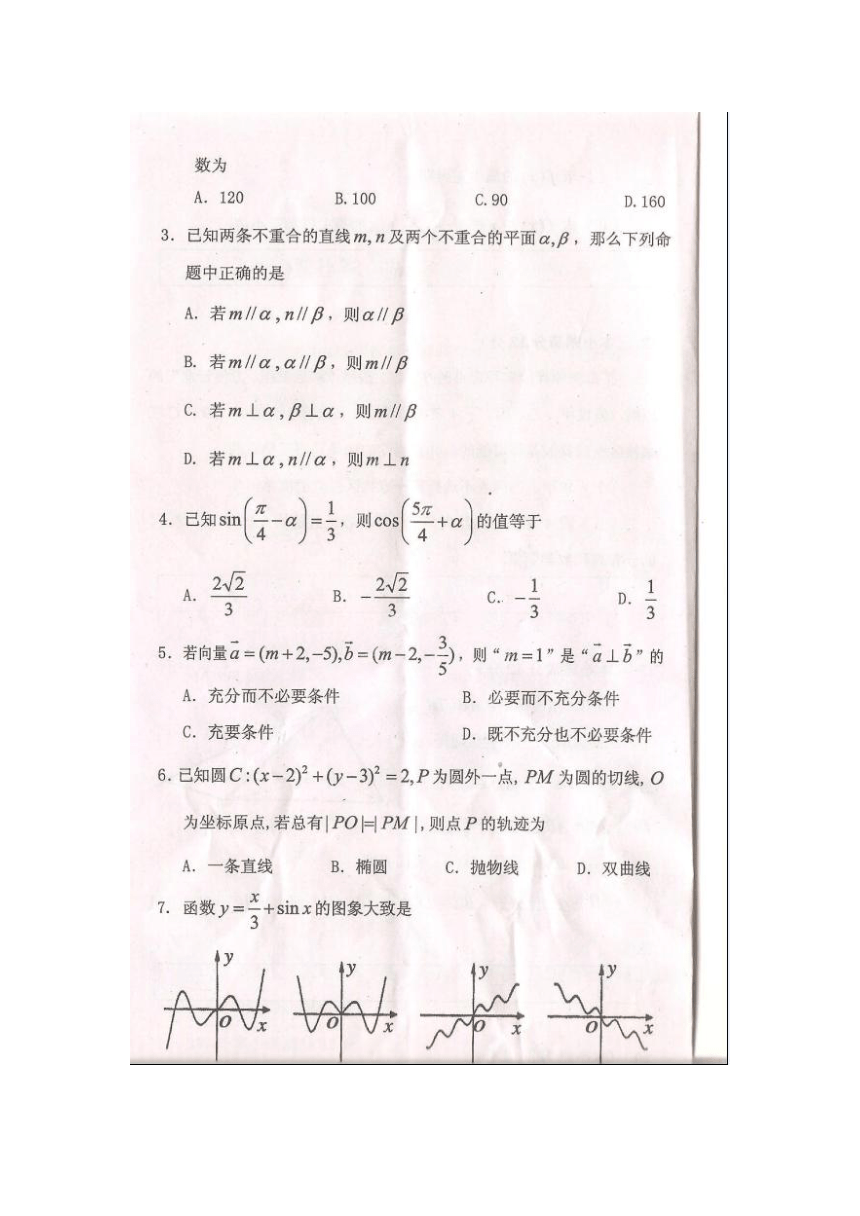 数为
A. 120 B. 100 C. 90 D. 160
3. 已知两条不重合的直线 m, n 及两个不重合的平面 α, β，那么下列命
题中正确的是
A. 若 m // α , n // β，则 α // β
B. 若 m // α , α // β，则 m // β
C. 若 m ⊥ α , β ⊥ α，则 m // β
D. 若 m ⊥ α , n // α，则 m ⊥ n
4. 已知 sin(π/4 − α) = 1/3，则 cos(5π/4 + α) 的值等于
A. 2√2/3 B. −2√2/3 C. −1/3 D. 1/3
5. 若向量 a⃗ = (m+2,−5), b⃗ = (m−2,−3/5)，则“m=1”是“a⃗ ⊥ b⃗”的
A. 充分而不必要条件 B. 必要而不充分条件
C. 充要条件 D. 既不充分也不必要条件
6. 已知圆 C : (x−2)² + (y−3)² = 2, P 为圆外一点, PM 为圆的切线, O
为坐标原点, 若总有 | PO |=| PM |, 则点 P 的轨迹为
A. 一条直线 B. 椭圆 C. 抛物线 D. 双曲线
7. 函数 y = x/3 + sin x 的图象大致是
y y y y
O x O x O x O x